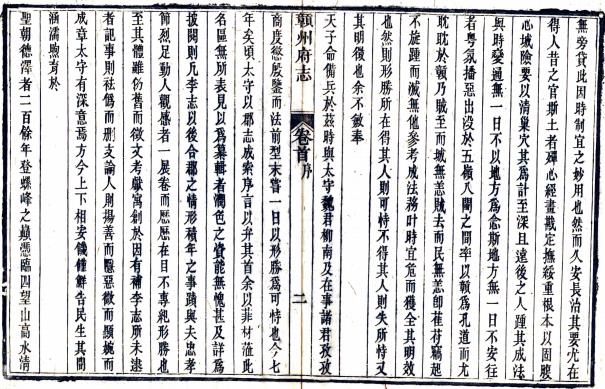 無旁貸此因時制宜之妙用也然而久安長治其要尤在
得人昔之官斯土者殫心經畫戡定撫綏重根本以固腹
心城險要以清巢穴其為計至深且遠後之人踵其成法
與時變通無一日不以地方為念斯地方無一日不安往
者粵氛播惡出沒於五嶺八閩之間率以贛為孔道而尤
眈眈於贛乃賊至而城無恙賊去而民無恙卽萑苻竊起
不旋踵而滅無他參考成法務叶時宜竟而獲全其明效
也然則形勝所在得其人則可恃不得其人則失所恃又
其明徵也余不敏奉
天子命備兵於茲時與太守魏君柳南及在事諸君孜孜
贛州府志
卷首
序
二
商度慇慇鑒而法前型未嘗一日以形勝為可恃也今七
年矣頃太守以郡志成索序言以弁其首余以菲材蒞此
名區無所表見以為纂輯者潤色之資能無愧甚及詳為
披閱則凡李志以後合郡之情形積年之事蹟與夫忠孝
節烈足動人觀感者一展卷而歷歷在目不專純形勝也
至其體雖仍舊而徵文考獻寓創於因有補李志所未逮
者記事則祛僞而刪支論人則揚善而隱惡微而顯婉而
成章太守有深意焉方今上下相安饑饉鮮告民生其間
涵濡煦育於
聖朝德澤者二百餘年登螺峰之巔憑臨四望山高水清